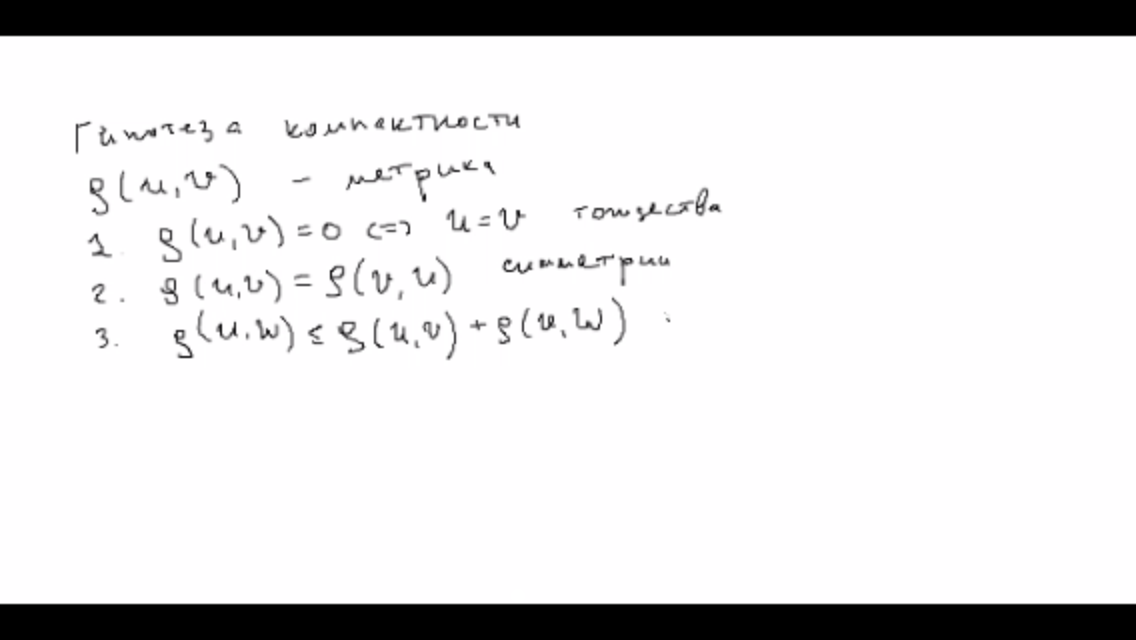 Гипотеза компактности
ρ(u,v) – метрика
1. ρ(u,v) = 0 <=> u = v тождества
2. ρ(u,v) = ρ(v,u) симметрии
3. ρ(u,w) ≤ ρ(u,v) + ρ(v,w)